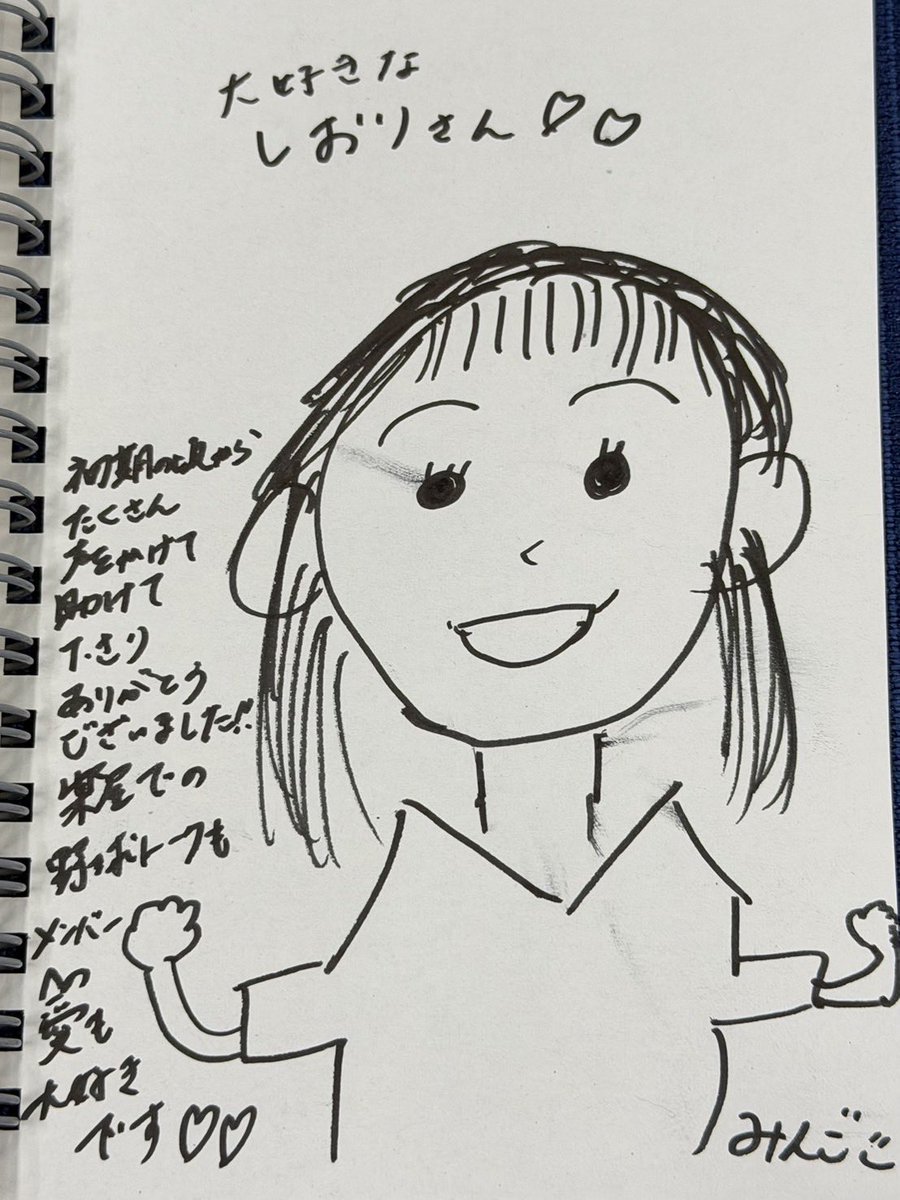 大好きな
しおりさん♡♡
初期の頃から
たくさん
声をかけて
助けて
下さり
ありがとう
ございました!!
楽屋での
トークも
メンバー
への
愛も
大好き
です♡♡
みんごご